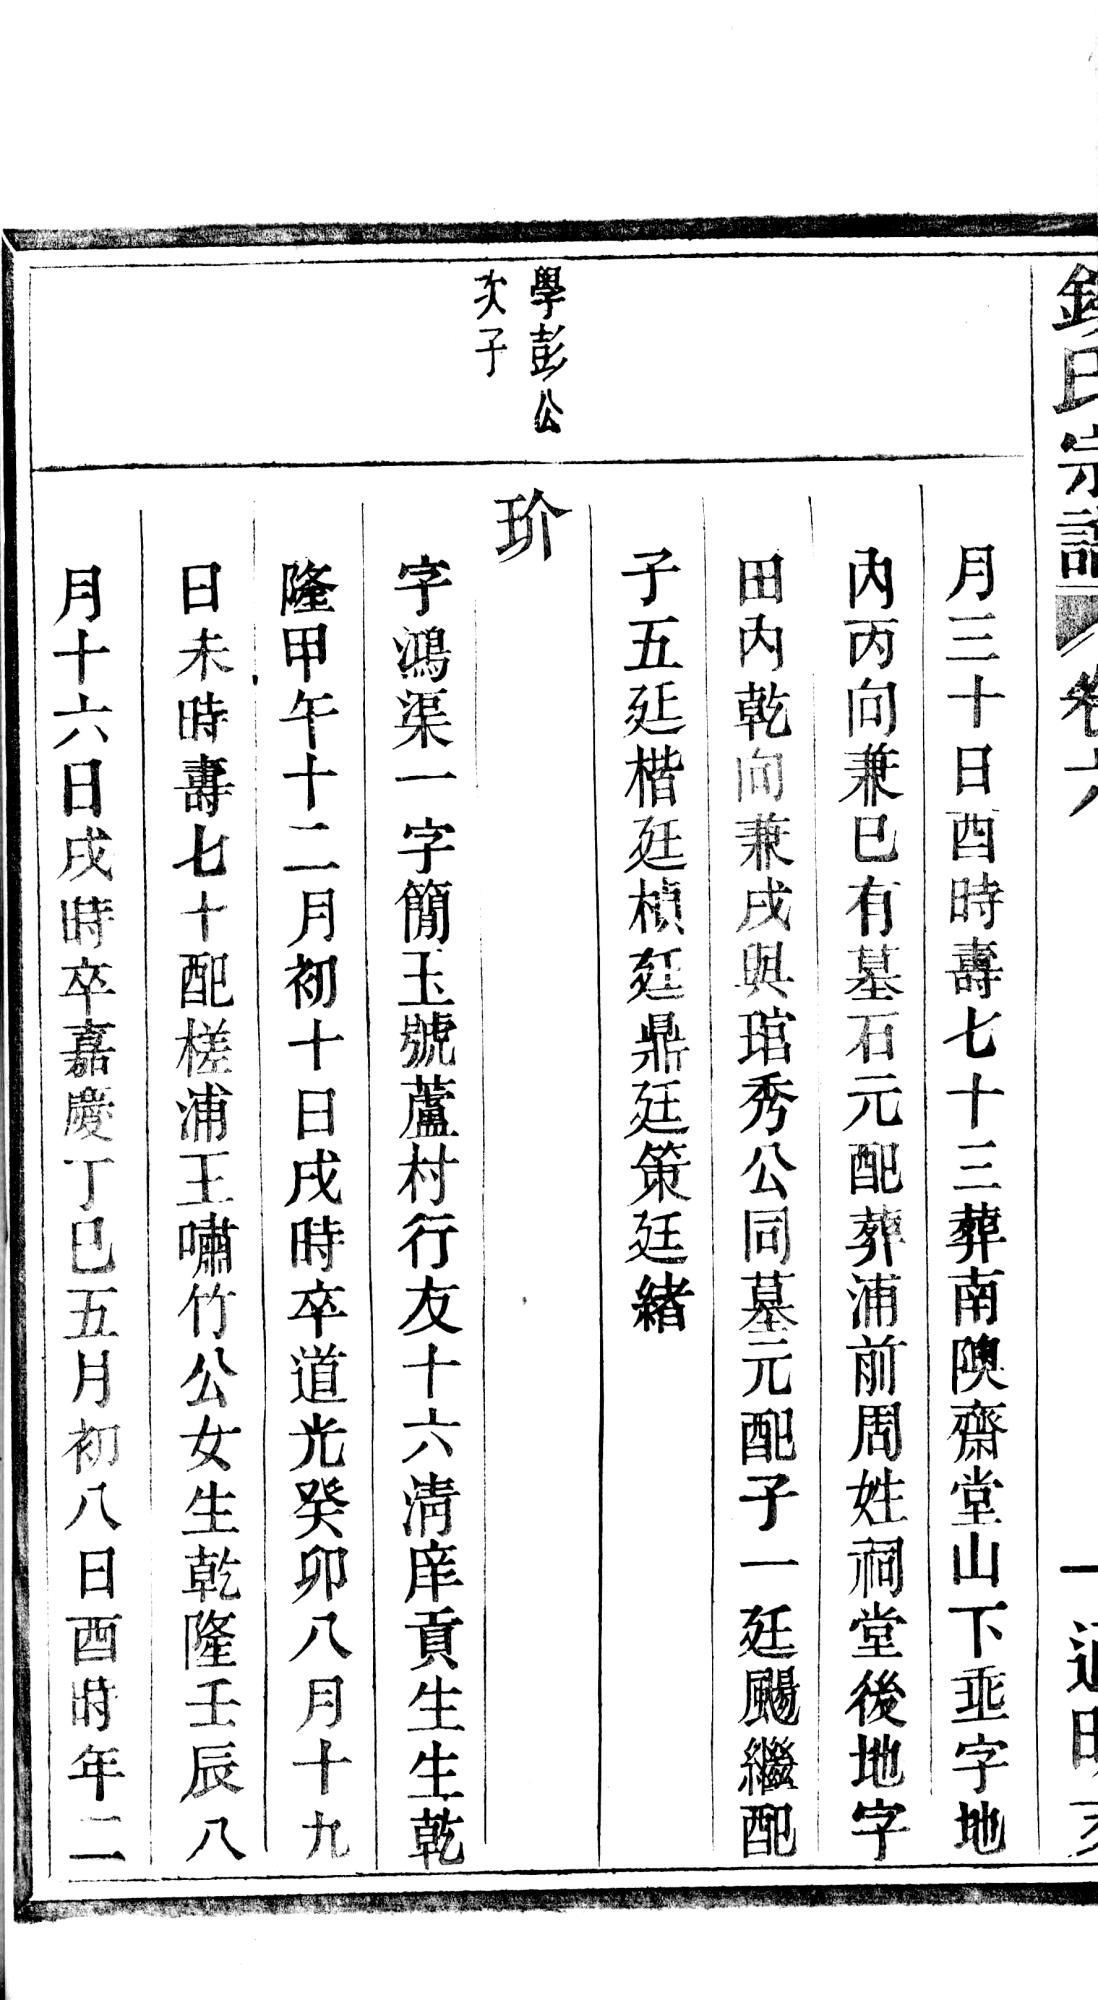 氏宗譜 卷六
月三十日酉時壽七十三葬南隩齋堂山下亜字地
內丙向兼巳有墓石元配葬浦前周姓祠堂後地字
田內乾向兼戌與琯秀公同墓元配子一廷颺繼配
子五廷楷廷楨廷鼎廷策廷緒
學彭公
次子
玠
字鴻渠一字簡玉號蘆村行友十六淸庠貢生生乾
隆甲午十二月初十日戌時卒道光癸卯八月十九
日未時壽七十配槎浦王嘯竹公女生乾隆壬辰八
月十六日戌時卒嘉慶丁巳五月初八日酉時年二